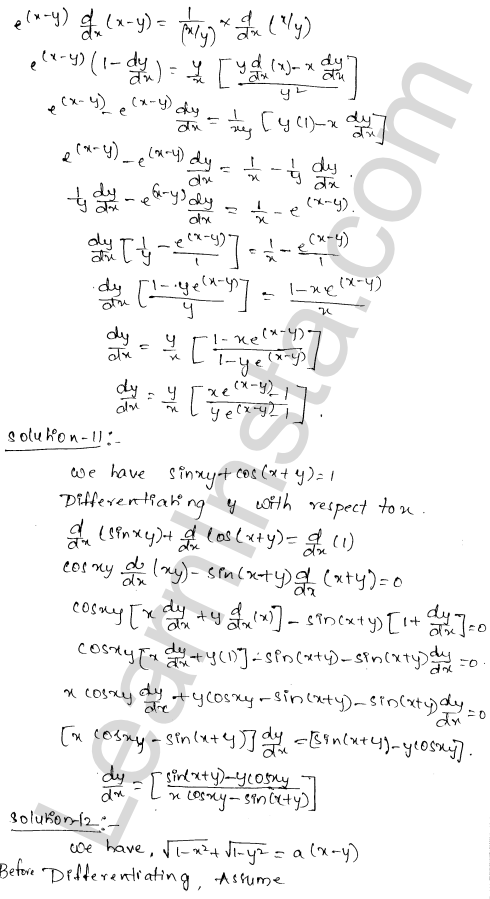 e^(x-y) d/dx (x-y) = 1/(x/y) × d/dx (x/y)
e^(x-y) (1 - dy/dx) = y/x [ (y d/dx (x) - x dy/dx) / y² ]
e^(x-y) - e^(x-y) dy/dx = 1/xy [ y(1) - x dy/dx ]
e^(x-y) - e^(x-y) dy/dx = 1/x - 1/y dy/dx .
1/y dy/dx - e^(x-y) dy/dx = 1/x - e^(x-y) .
dy/dx [ 1/y - e^(x-y)/1 ] = 1/x - e^(x-y)/1
dy/dx [ (1 - ye^(x-y)) / y ] = (1 - xe^(x-y)) / x
dy/dx = y/x [ (1 - xe^(x-y)) / (1 - ye^(x-y)) ]
dy/dx = y/x [ (xe^(x-y) - 1) / (ye^(x-y) - 1) ] .
Solution-11:-
We have sinxy + cos(x+y) = 1
Differentiating y with respect to x .
d/dx (sinxy) + d/dx cos(x+y) = d/dx (1)
cosxy d/dx (xy) - sin(x+y) d/dx (x+y) = 0
cosxy [ x dy/dx + y d/dx (x) ] - sin(x+y) [ 1 + dy/dx ] = 0
cosxy [ x dy/dx + y(1) ] - sin(x+y) - sin(x+y) dy/dx = 0 .
x cosxy dy/dx + y cosxy - sin(x+y) - sin(x+y) dy/dx = 0
[ x cosxy - sin(x+y) ] dy/dx = [ sin(x+y) - y cosxy ] .
dy/dx = [ (sin(x+y) - y cosxy) / (x cosxy - sin(x+y)) ]
Solution-12:-
We have, √1-x² + √1-y² = a (x-y)
Before Differentiating, Assume
LearnInsta.com